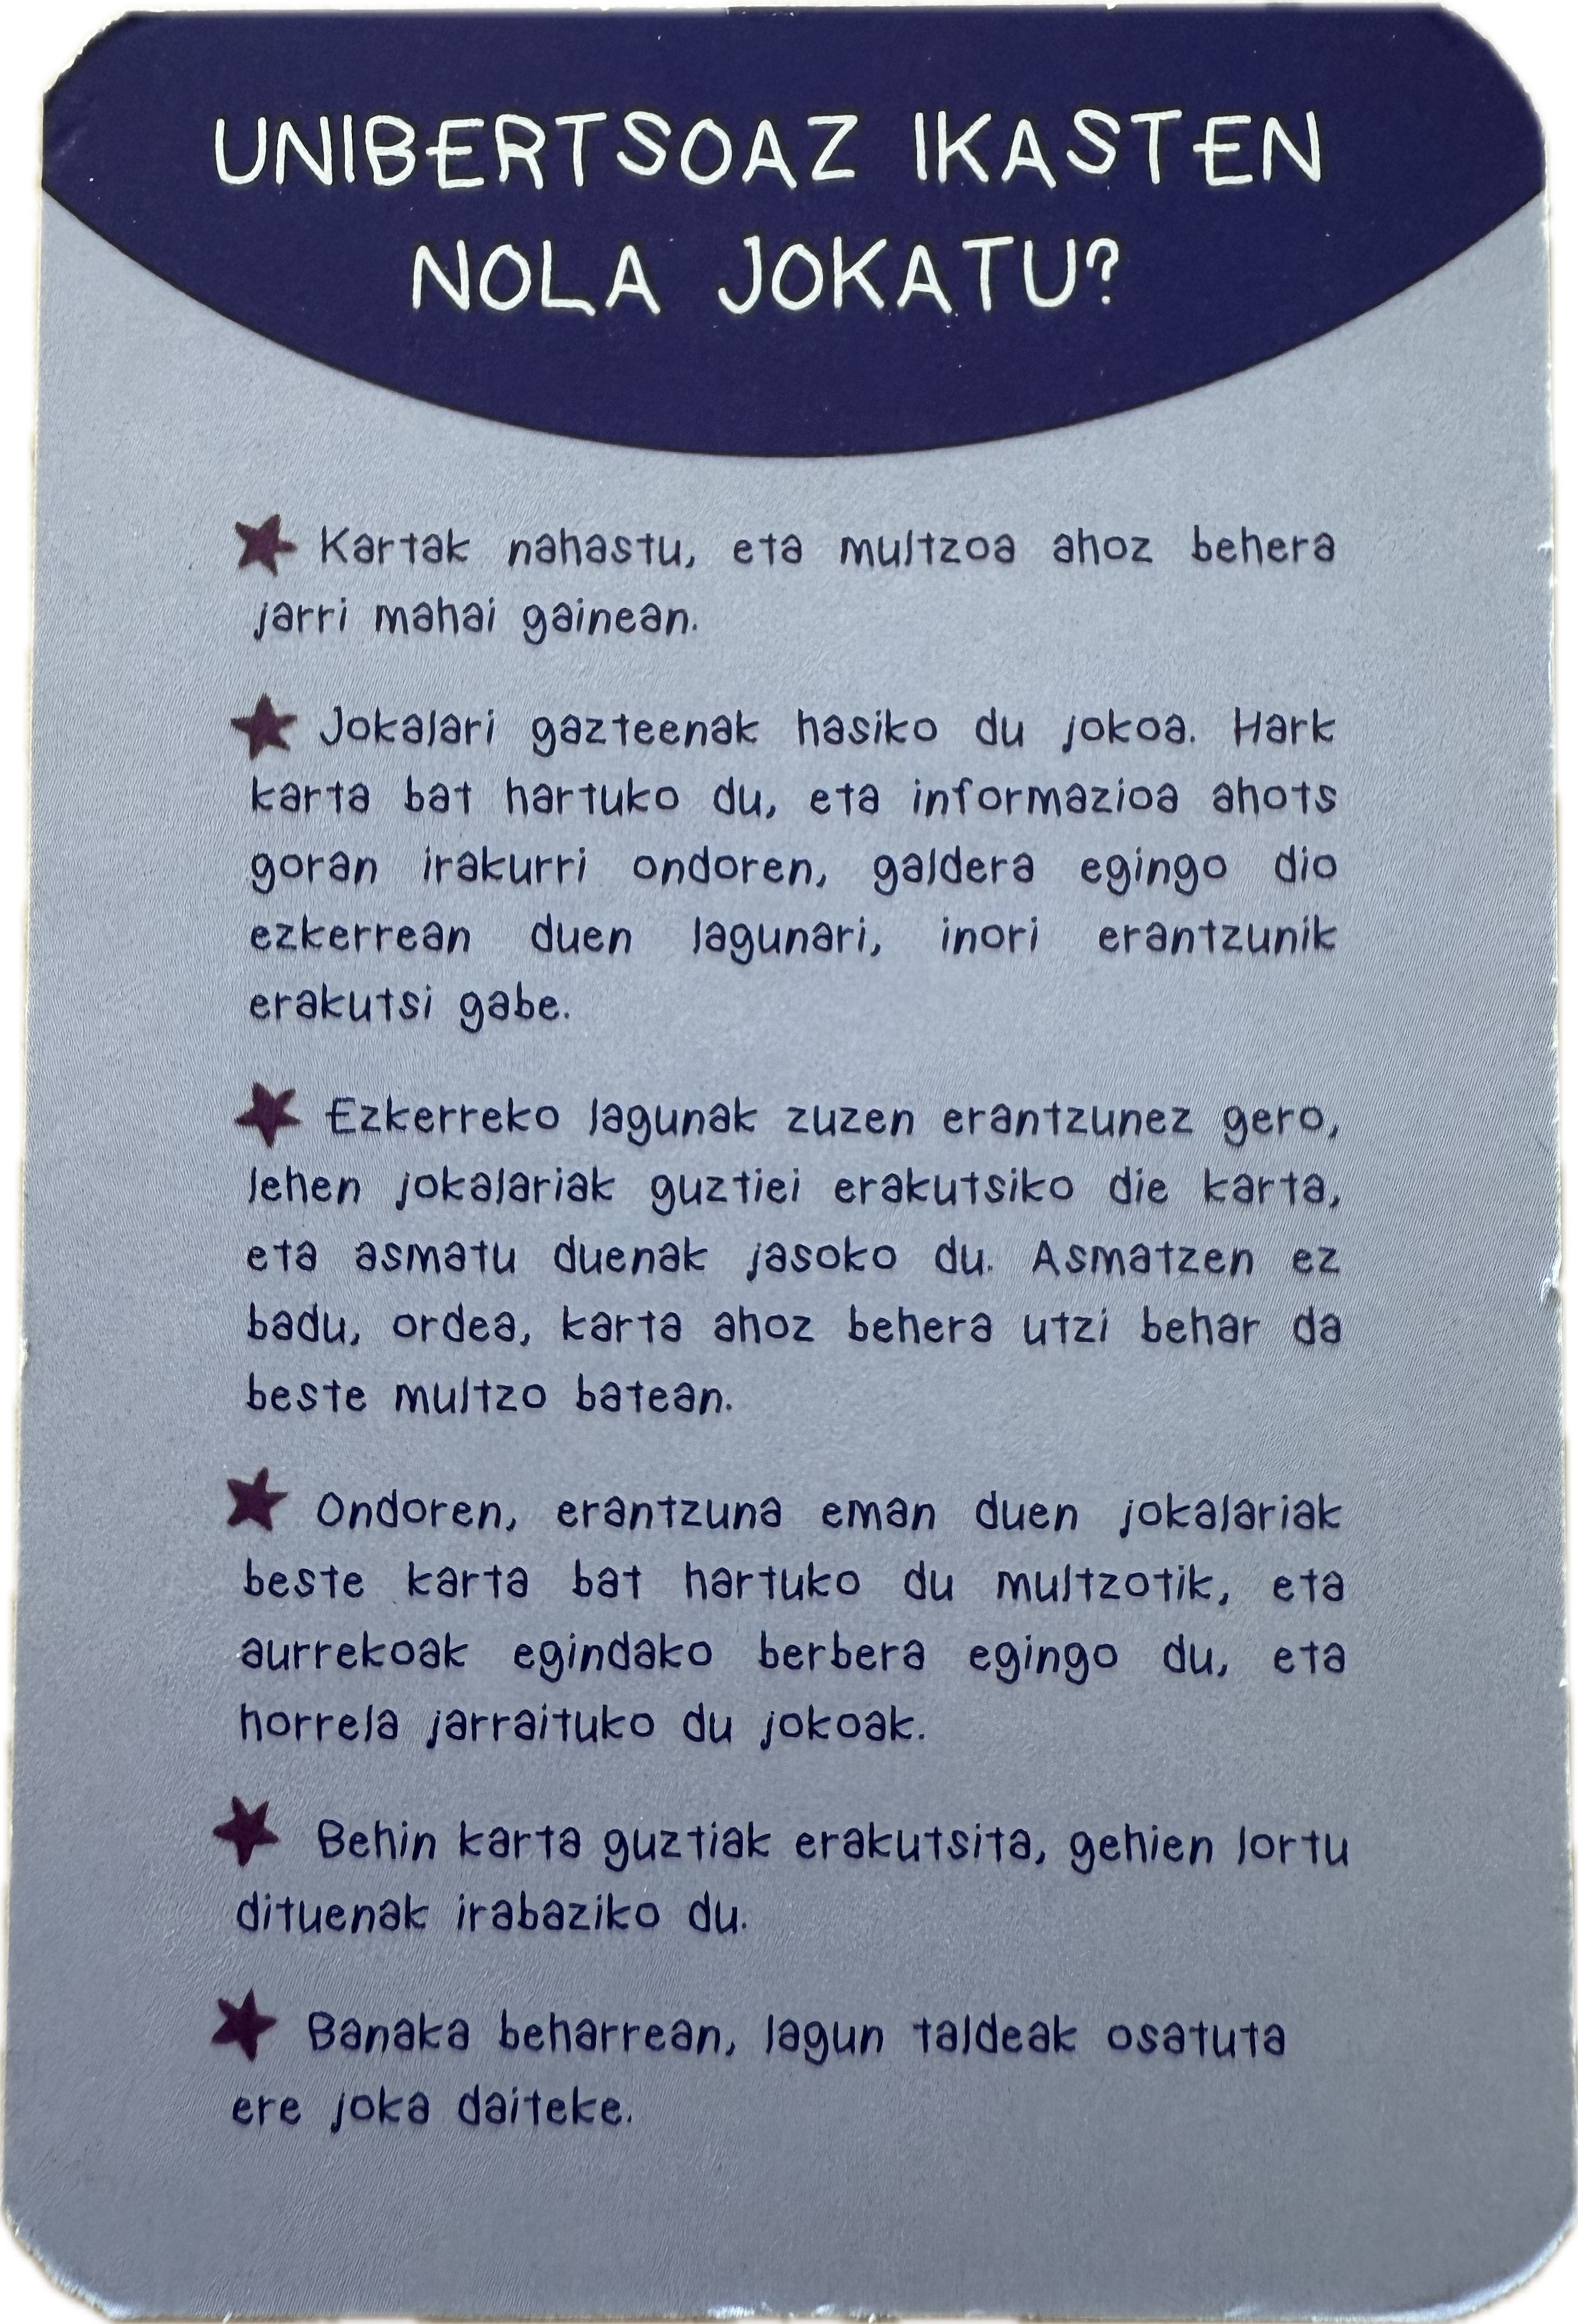 UNIBERTSOAZ IKASTEN
NOLA JOKATU?
Kartak nahastu, eta multzoa ahoz behera
jarri mahai gainean.
Jokalari gazteenak hasiko du jokoa. Hark
karta bat hartuko du, eta informazioa ahots
goran irakurri ondoren, galdera egingo dio
ezkerrean duen lagunari, inori erantzunik
erakutsi gabe.
Ezkerreko lagunak zuzen erantzunez gero,
lehen jokalariak guztiei erakutsiko die karta,
eta asmatu duenak jasoko du. Asmatzen ez
badu, ordea, karta ahoz behera utzi behar da
beste multzo batean.
Ondoren, erantzuna eman duen jokalariak
beste karta bat hartuko du multzotik, eta
aurrekoak egindako berbera egingo du, eta
horrela jarraituko du jokoak.
Behin karta guztiak erakutsita, gehien lortu
dituenak irabaziko du.
Banaka beharrean, lagun taldeak osatuta
ere joka daiteke.